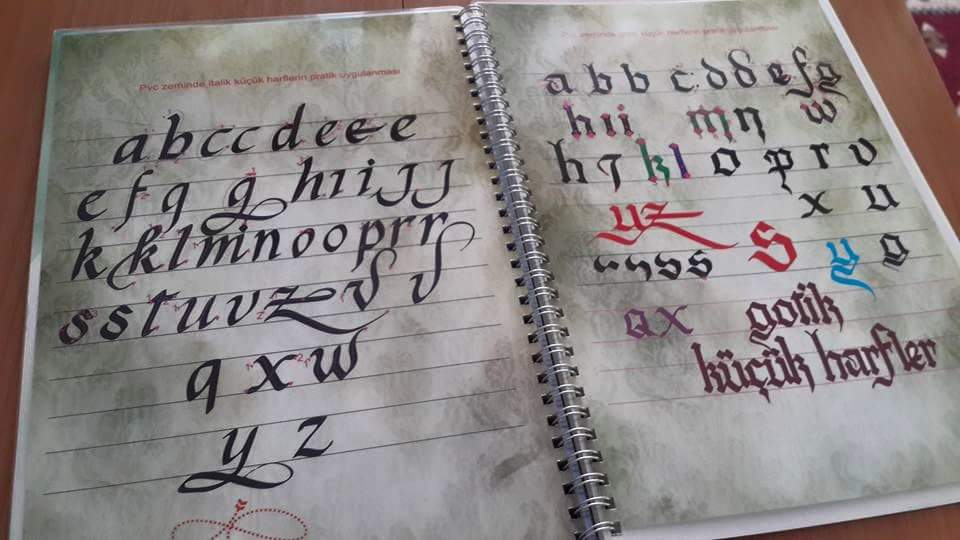 Pvc zeminde,italik küçük harflerin pratik uygulanması
a b c c d e e e e
e f g g h ı i j j
k k l m i n o o p r r
s s t u v z v v
q x w
y z
Pvc zeminde gotik küçük harflerin pratik uygulanması
a b b c d d e f g
h ı i m n w
h j k l o p r v
x u
u z
s s s y o
a x gotik
küçük harfler